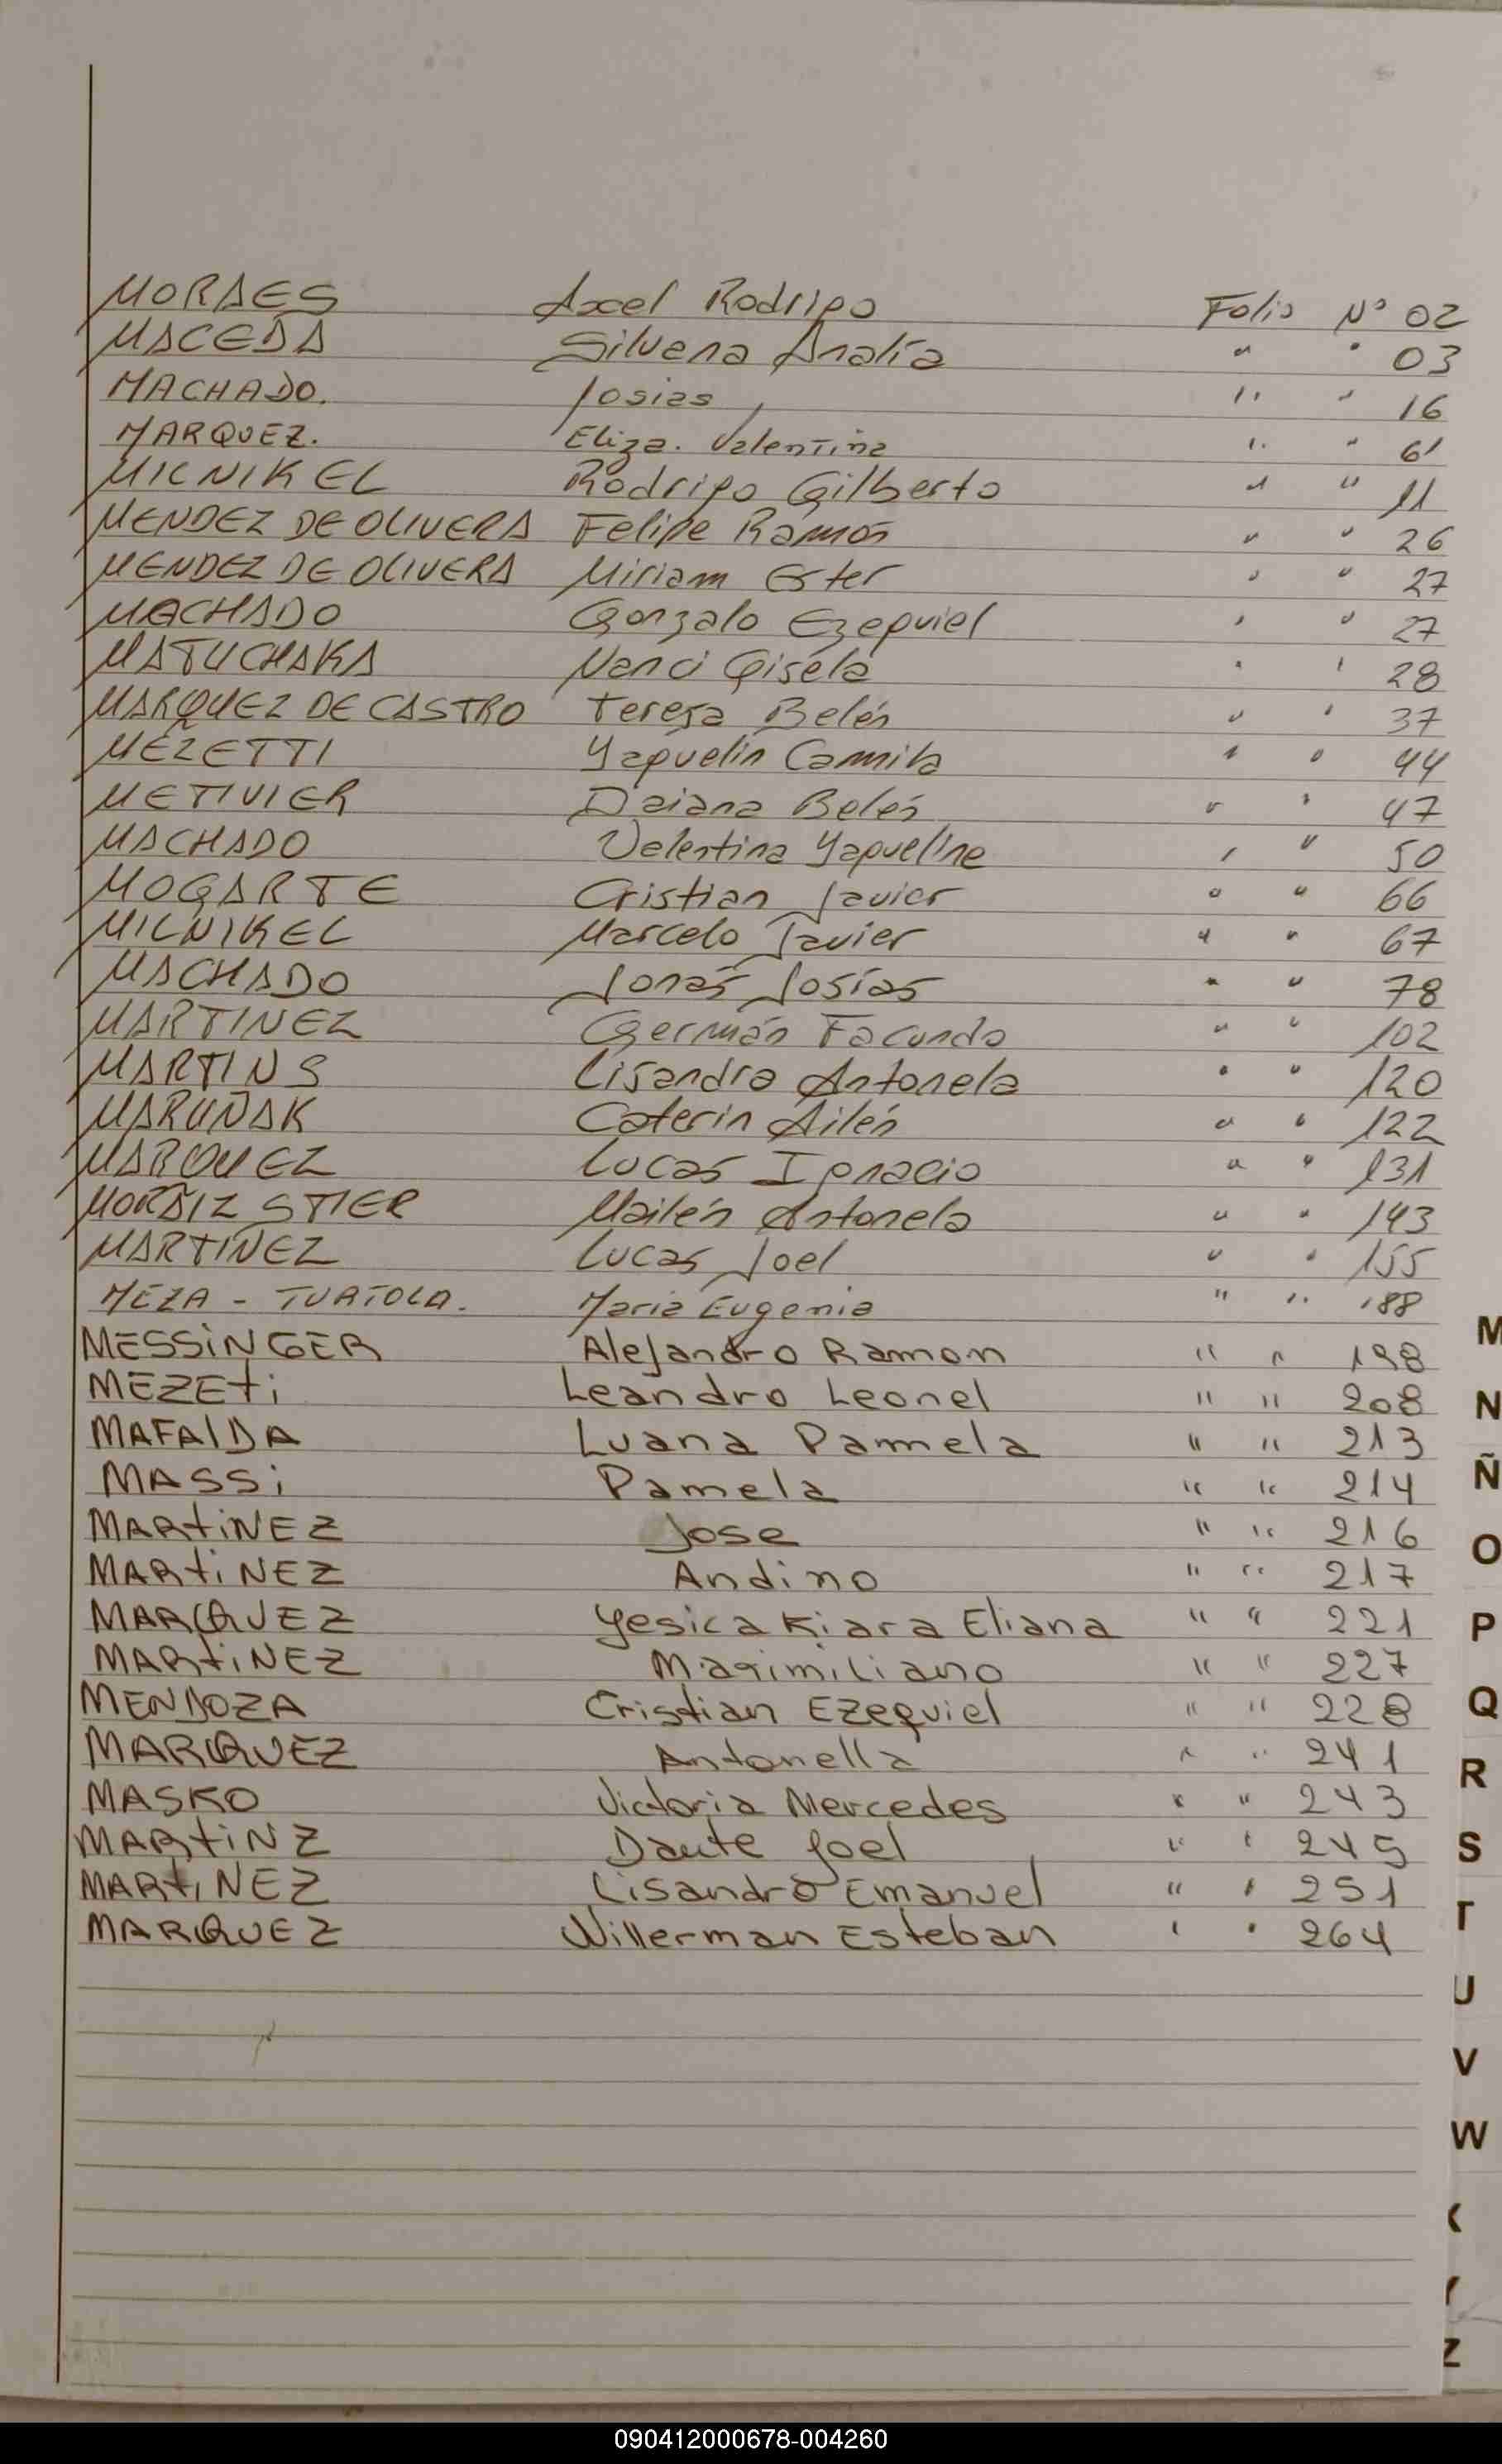 MORAES Axel Rodrigo Folio Nº 02
MACEDA Silvana Analía " " 03
MACHADO. Josias " " 16
MARQUEZ. Eliza. Valentina " " 61
MILNIKEL Rodrigo Gilberto " " 11
MENDEZ DE OLIVERA Felipe Ramón " " 26
MENDEZ DE OLIVERA Miriam Ester " " 27
MACHADO Gonzalo Ezequiel " " 27
MATUCHAKA Nanci Gisela " " 28
MARQUEZ DE CASTRO Teresa Belén " " 37
MEZETTI Yaquelin Camila " " 44
METIVIER Daiana Belén " " 47
MACHADO Valentina Yaqueline " " 50
MOGARTE Cristian Javier " " 66
MILNIKEL Marcelo Javier " " 67
MACHADO Jonás Josías " " 78
MARTINEZ Germán Facundo " " 102
MARTINS Lisandra Antonela " " 120
MARUÑAK Caterin Ailén " " 122
MARQUEZ Lucas Ignacio " " 131
MORAIZ STIER Mailén Antonela " " 143
MARTINEZ Lucas Joel " " 155
MEZA - TURTOLA. Maria Eugenia " " 188
MESSiNGER Alejandro Ramon " " 198
MEZEti Leandro Leonel " " 208
MAFAlDA Luana Pamela " " 213
MASSi Pamela " " 214
MARtiNEZ Jose " " 216
MARtiNEZ Andino " " 217
MARQUEZ Yesica Kiara Eliana " " 221
MARtiNEZ Maximiliano " " 227
MENDOZA Cristian Ezequiel " " 228
MARQUEZ Antonella " " 241
MASKO Victoria Mercedes " " 243
MARtiNZ Dante Joel " " 245
MARtiNEZ Lisandro Emanuel " " 251
MARQUEZ Willerman Esteban " " 264
M
N
Ñ
O
P
Q
R
S
T
U
V
W
Z
090412000678-004260